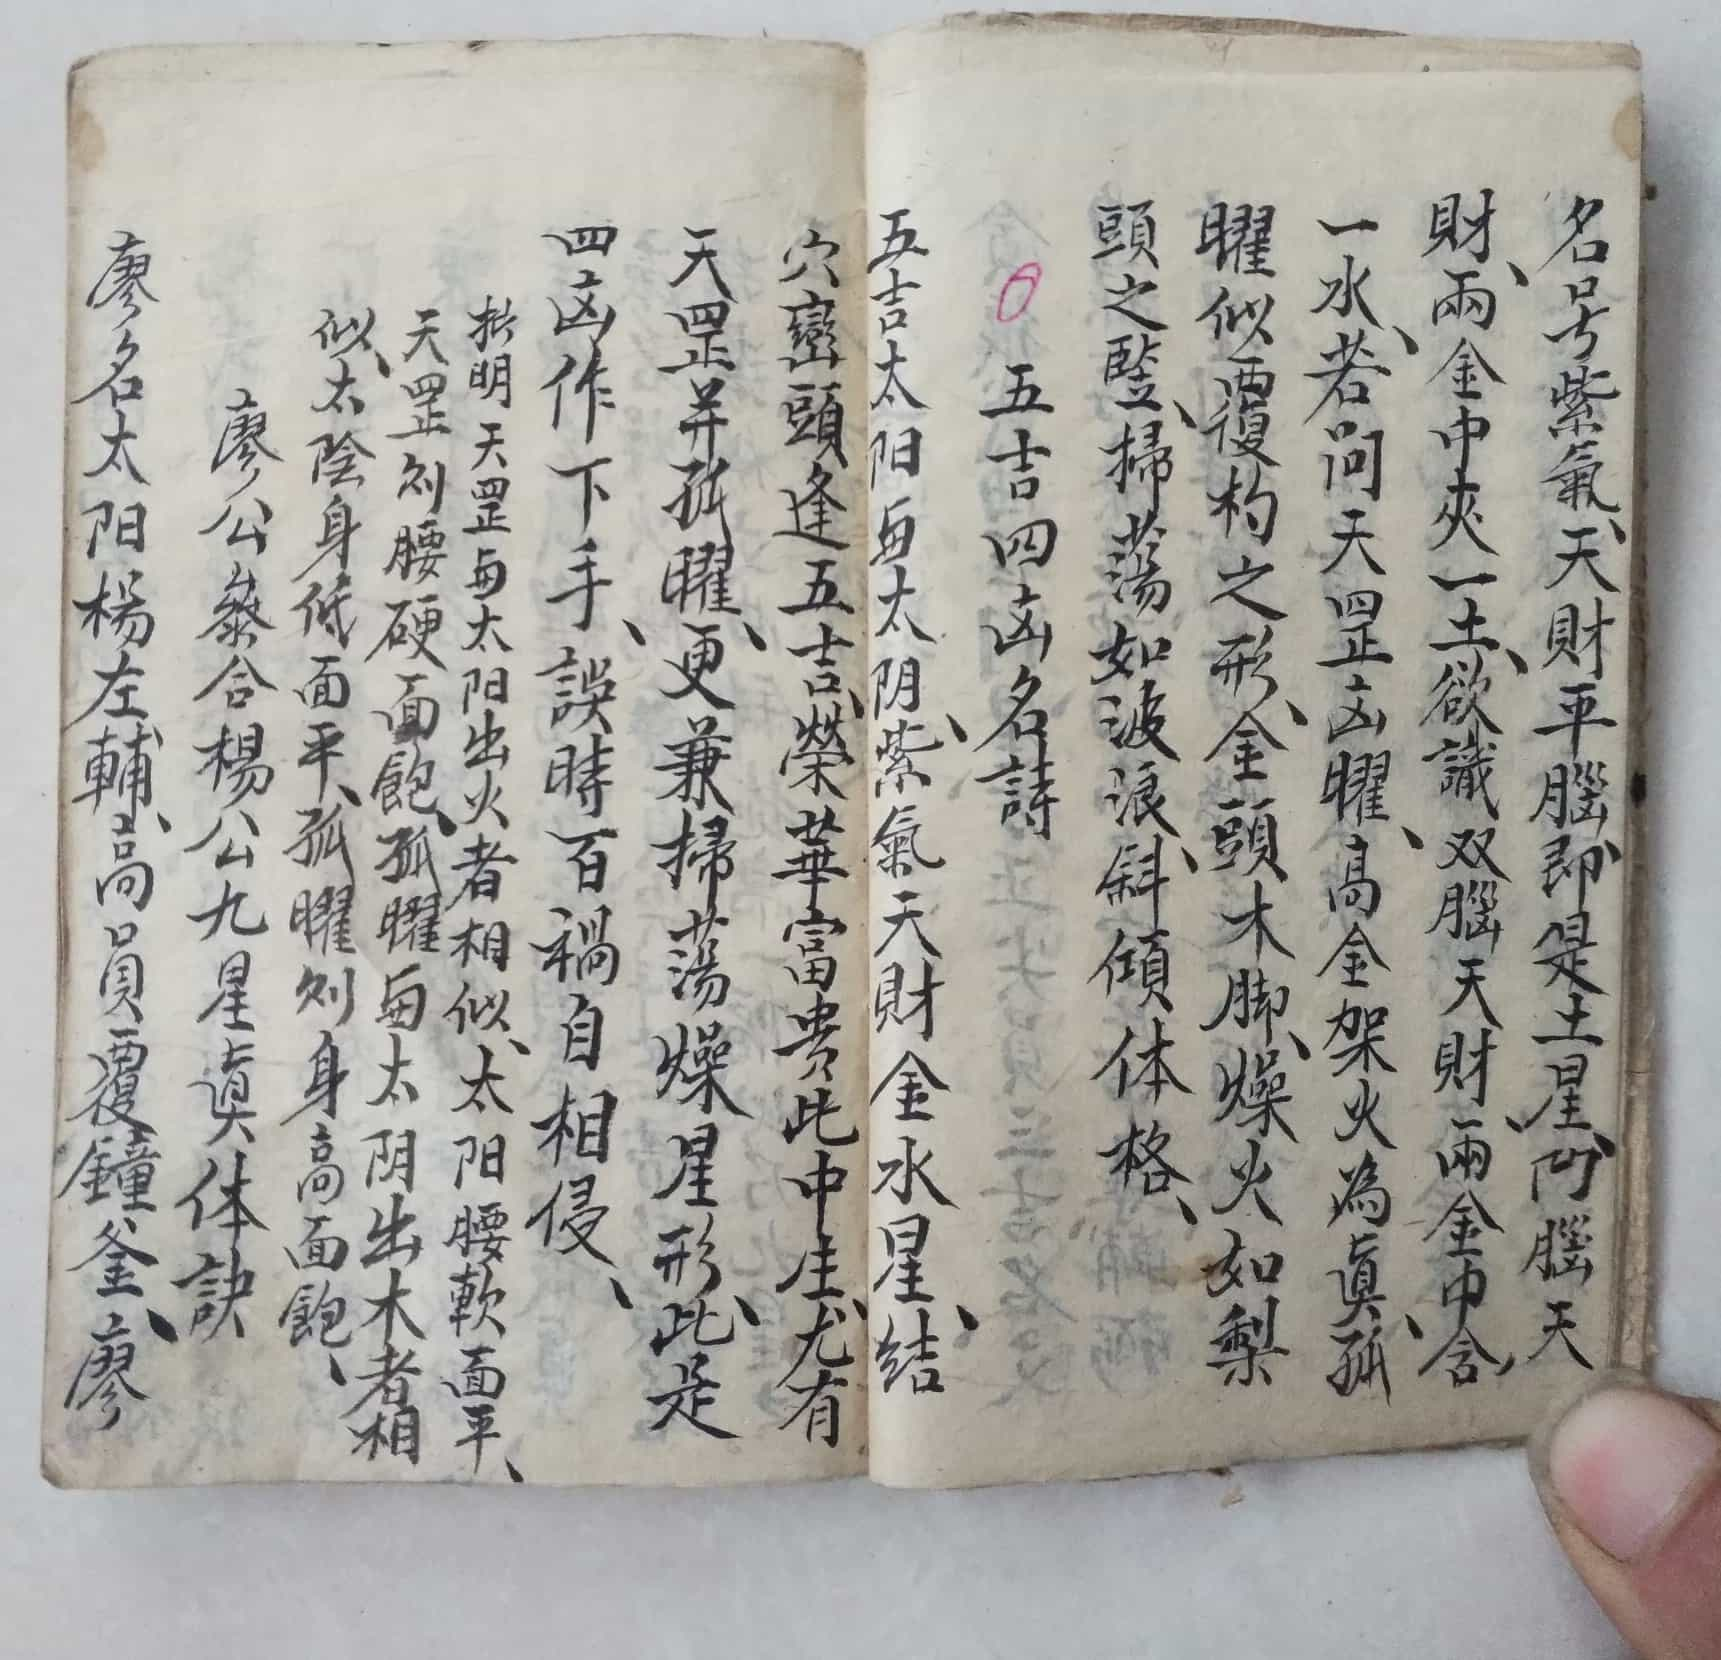 名号紫氣、天財平腦即是土星、凹腦天
財、兩金中夾一土、欲識双腦天財兩金中含
一水、若问天罡凶曜、高金架火為真、孤
曜似覆杓之形、金頭木脚、燥火如梨
頭之竪、掃蕩如波浪、斜傾体格、
五吉四凶名詩
五吉太阳与太阴、紫氣天財金水星、结
穴巒頭逢五吉、榮華富貴此中庄、尤有
天罡并孤曜、更兼掃蕩燥星形、此是
四凶作下手、誤時百禍自相侵、
批明天罡与太阳出火者相似、太阳腰軟面平、
天罡则腰硬面飽、孤曜与太阴出木者相
似、太陰身低面平、孤曜则身高面飽、
廖公叅合楊公九星真体訣
廖名太阳楊左輔、高員覆鐘釜、廖